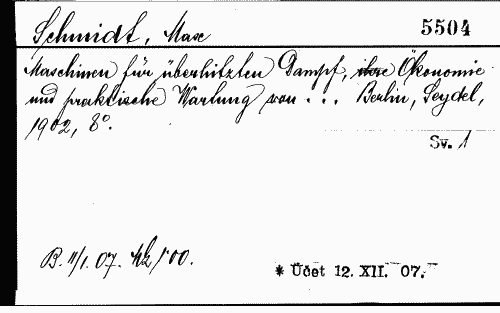 Schmidt, Max
5504
Maschinen für überhitzten Dampf, ihre Ökonomie
und praktische Wartung von ... Berlin, Seydel,
1902, 8°.
Sv. 1
B. 11/1. 07.
* Účet 12. XII. 07.